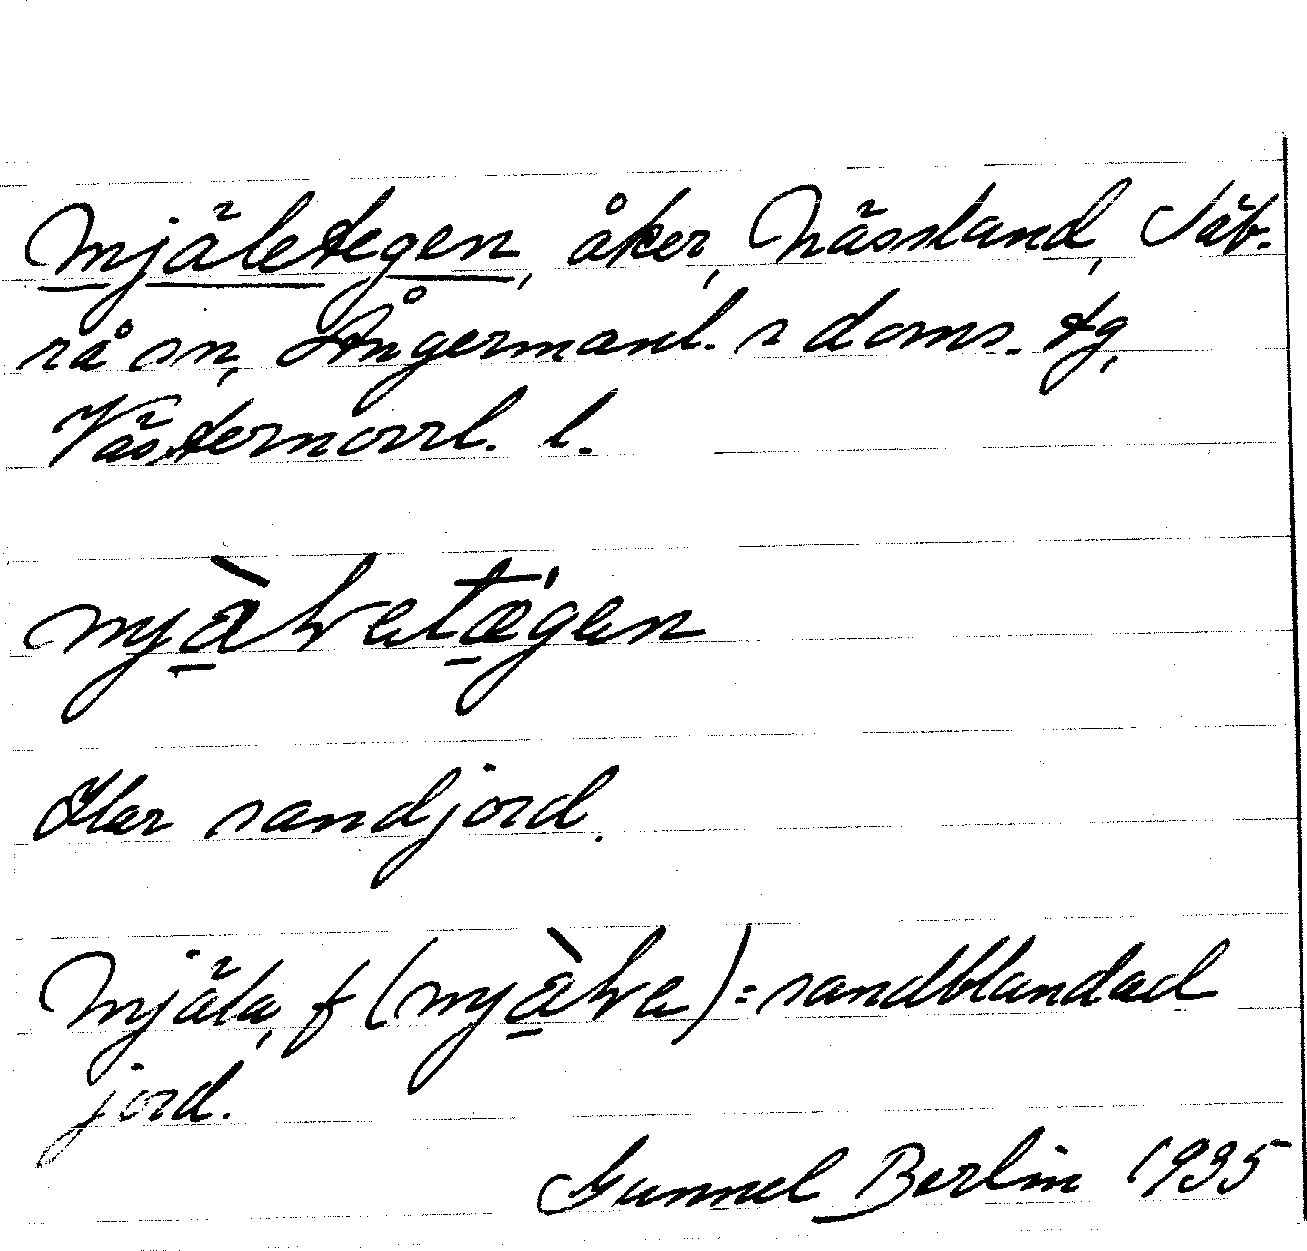 Mjäletegen, åker, Nässland, Säb-
rå sn, Ångermanl. s doms. tg,
Västernorrl. l.
Har sandjord.
Mjäla, f = sandblandad
jord.
Gunnel Berlin 1935